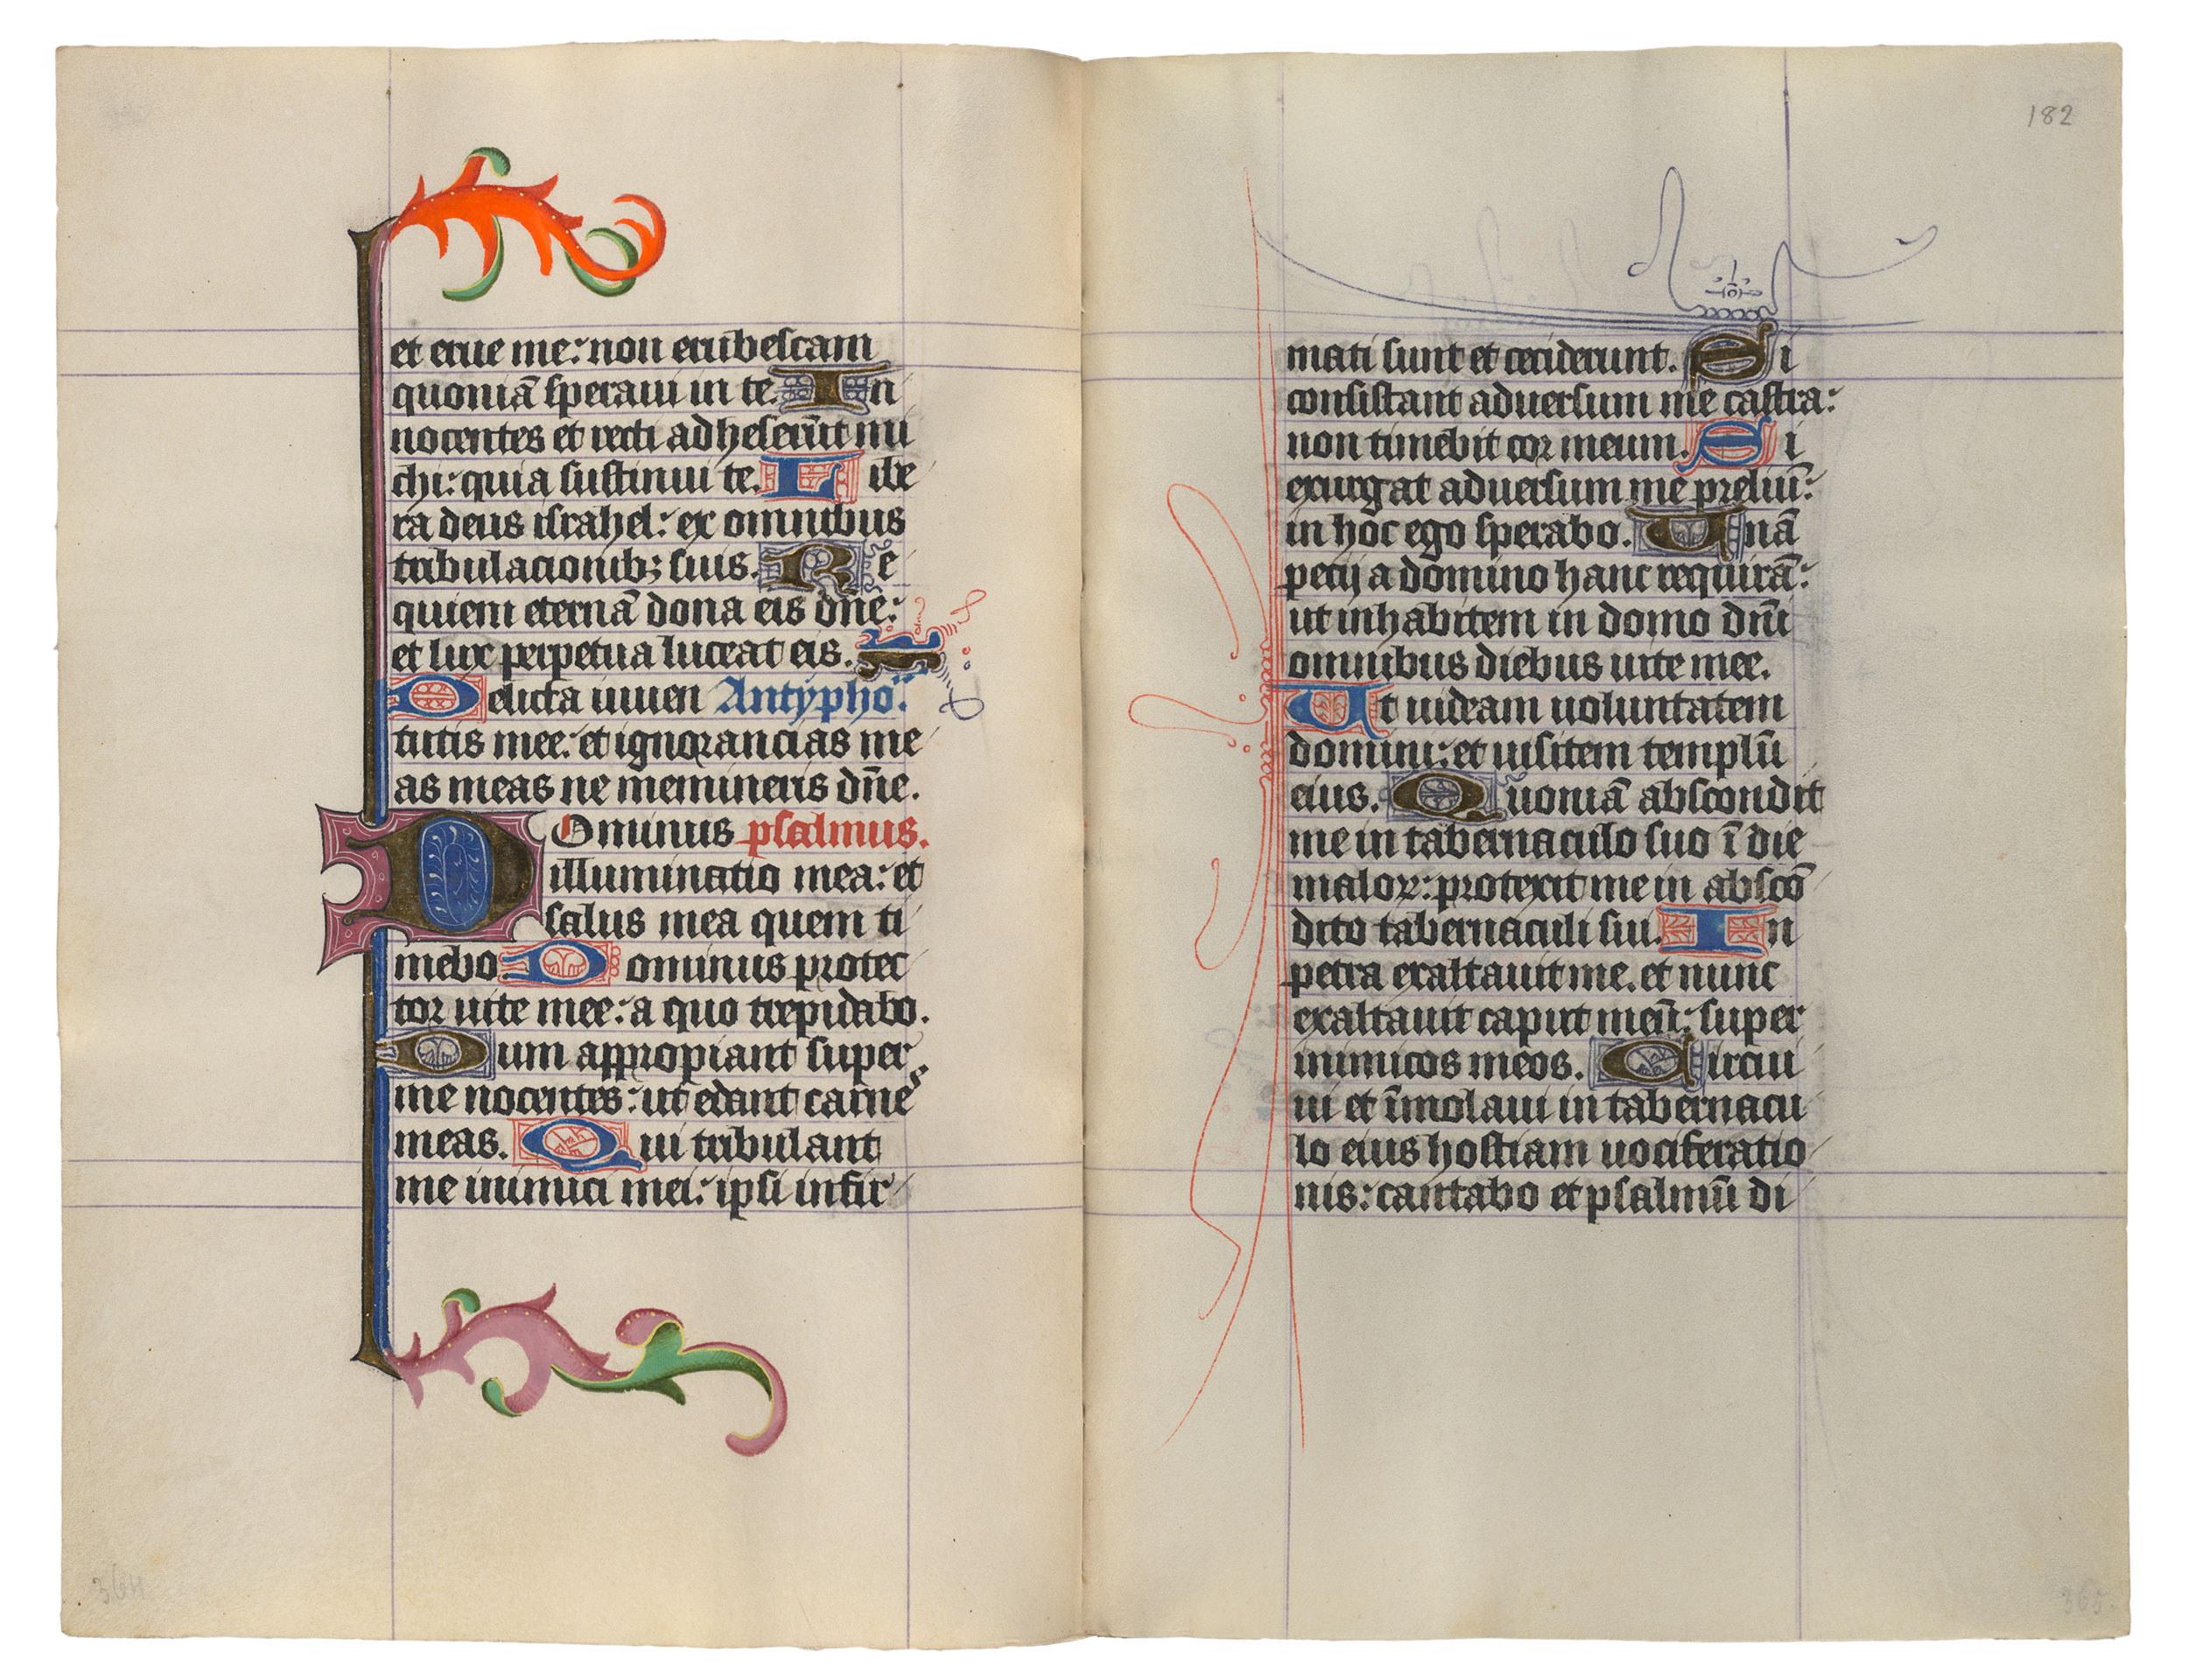 et erue me: non erubescam
quoniā speraui in te. In
nocentes et recti adheserūt mi
chi: quia sustinui te. Libe
ra deus israhel: ex omnibus
tribulacionib; suis. Re
quiem eternā dona eis dn̄e:
et lux perpetua luceat eis.
Delicta iuuen Antypho
tutis mee: et ignorancias me
as meas ne memineris dn̄e.
Dominus psalmus.
illuminatio mea: et
salus mea quem ti
mebo Dominus protec
tor uite mee: a quo trepidabo.
Dum appropiant super
me nocentes: ut edant carnes
meas. Qui tribulant
me inimici mei: ipsi infir
364
182
mati sunt et ceciderunt. Si
consistant aduersum me castra:
non timebit cor meum. Si
exurgat aduersum me preliū:
in hoc ego sperabo. Unā
petij a domino hanc requirā:
ut inhabitem in domo dn̄i
omnibus diebus uite mee.
Ut uideam uoluntatem
domini: et uisitem templū
eius. Quoniā abscondit
me in tabernaculo suo ī die
maloꝝ: protexit me in abscō
dito tabernaculi sui. In
petra exaltauit me. et nunc
exaltauit caput meū: super
inimicos meos. Circui
ui et īmolaui in tabernacu
lo eius hostiam uociferatio
nis: cantabo et psalmū di
365